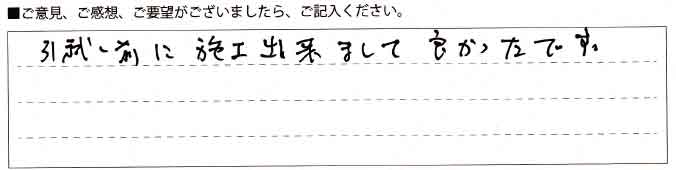 ■ご意見、ご感想、ご要望がございましたら、ご記入ください。
引越し前に施工出来まして良かったです。